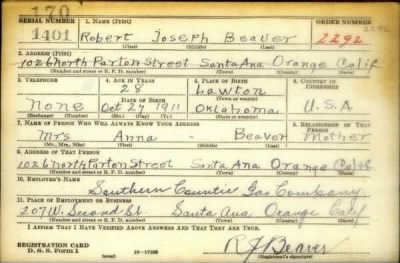 170
SERIAL NUMBER 1. NAME (Print) ORDER NUMBER
1401 Robert Joseph Beaver 2292 2292
(First) (Middle) (Last)
2. ADDRESS (Print)
1026 North Parton Street Santa Ana Orange Calif
(Number and street or R. F. D. number) (Town) (County) (State)
3. TELEPHONE 4. AGE IN YEARS 5. PLACE OF BIRTH 6. COUNTRY OF CITIZENSHIP
28 Lawton
DATE OF BIRTH (Town or county)
None Oct 27 1911 Oklahoma U.S.A
(Exchange) (Number) (Mo.) (Day) (Yr.) (State or country)
7. NAME OF PERSON WHO WILL ALWAYS KNOW YOUR ADDRESS 8. RELATIONSHIP OF THAT PERSON
Mrs Anna - Beaver Mother
(Mr., Mrs., Miss) (First) (Middle) (Last)
9. ADDRESS OF THAT PERSON
1026 North Parton Street Santa Ana Orange Calif
(Number and street or R. F. D. number) (Town) (County) (State)
10. EMPLOYER'S NAME
Southern Counties Gas Company
11. PLACE OF EMPLOYMENT OR BUSINESS
207 W. Second St. Santa Ana Orange Calif
(Number and street or R. F. D. number) (Town) (County) (State)
I AFFIRM THAT I HAVE VERIFIED ABOVE ANSWERS AND THAT THEY ARE TRUE.
REGISTRATION CARD
D. S. S. Form 1 (over) 16-17105 R J Beaver
(Registrant's signature)